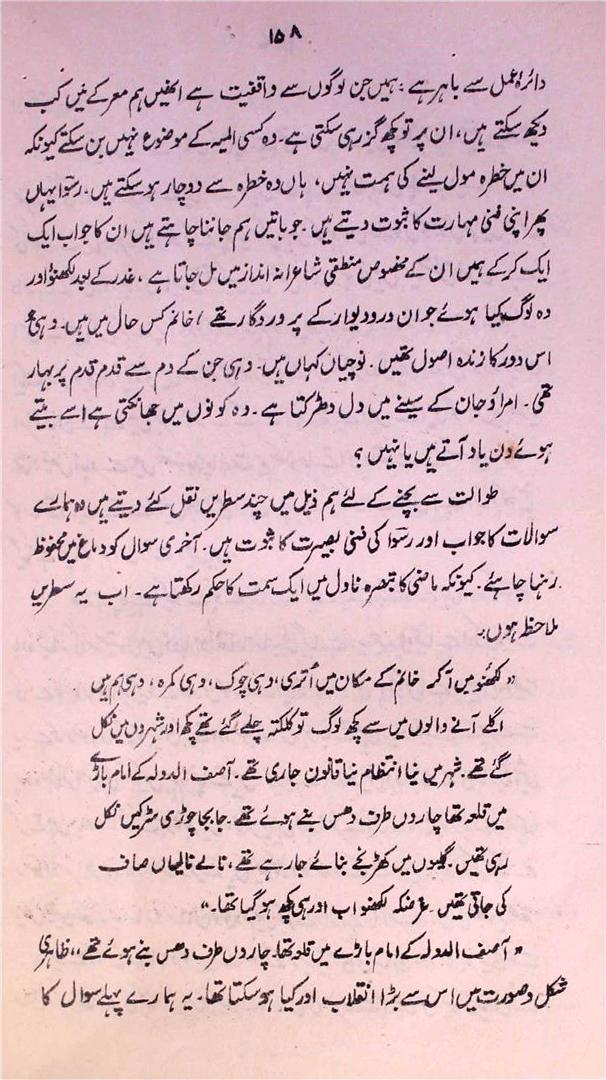 ۱۵۸
دائرۂ عمل سے باہر ہے ۔ ہمیں جن لوگوں سے واقفیت ہے انھیں ہم معرکے میں کب
دیکھ سکتے ہیں، ان پر تو کچھ گزر ہی سکتی ہے۔ وہ کسی المیہ کے موضوع نہیں بن سکتے کیونکہ
ان میں خطرہ مول لینے کی ہمت نہیں، ہاں وہ خطرہ سے دوچار ہو سکتے ہیں۔ رسوا یہاں
پھر اپنی فنی مہارت کا ثبوت دیتے ہیں۔ جو باتیں ہم جاننا چاہتے ہیں ان کا جواب ایک
ایک کر کے ہمیں ان کے مخصوص منطقی شاعرانہ انداز میں مل جاتا ہے ، غدر کے بعد لکھنؤ اور
وہ لوگ کیا ہوئے جو ان در و دیوار کے پروردگار تھے / خانم کس حال میں ہیں۔ وہی جو
اس دور کا زندہ اصول تھیں۔ نوچیاں کہاں ہیں۔ وہی جن کے دم سے قدم قدم پر بہار
تھی۔ امراؤ جان کے سینے میں دل دھڑکتا ہے۔ وہ کونوں میں جھانکتی ہے اسے بیتے
ہوئے دن یاد آتے ہیں یا نہیں ؟
طوالت سے بچنے کے لئے ہم ذیل میں چند سطریں نقل کئے دیتے ہیں وہ ہمارے
سوالات کا جواب اور رسوا کی فنی بصیرت کا ثبوت ہیں۔ آخری سوال کو دماغ میں محفوظ
رہنا چاہئے۔ کیونکہ ماضی کا تبصرہ ناول میں ایک سمت کا حکم رکھتا ہے۔ اب یہ سطریں
ملاحظہ ہوں:۔
" لکھنؤ میں آکر خانم کے مکان میں اُتری، وہی چوک، وہی کمرہ، وہی ہم ہیں
اگلے آنے والوں میں سے کچھ لوگ تو کلکتہ چلے گئے تھے کچھ اور شہروں میں نکل
گئے تھے۔ شہر میں نیا انتظام نیا قانون جاری تھے۔ آصف الدولہ کے امام باڑے
میں قلعہ تھا چاروں طرف دھس بنے ہوئے تھے۔ جابجا چوڑی سڑکیں نکل
رہی تھیں۔ گلیوں میں کھڑنجے بنائے جا رہے تھے، نالے نالیاں صاف
کی جاتی تھیں۔ غرضکہ لکھنؤ اب اور ہی کچھ ہو گیا تھا۔"
" آصف الدولہ کے امام باڑے میں قلعہ تھا۔ چاروں طرف دھس بنے ہوئے تھے،، ظاہری
شکل و صورت میں اس سے بڑا انقلاب اور کیا ہو سکتا تھا۔ یہ ہمارے پہلے سوال کا